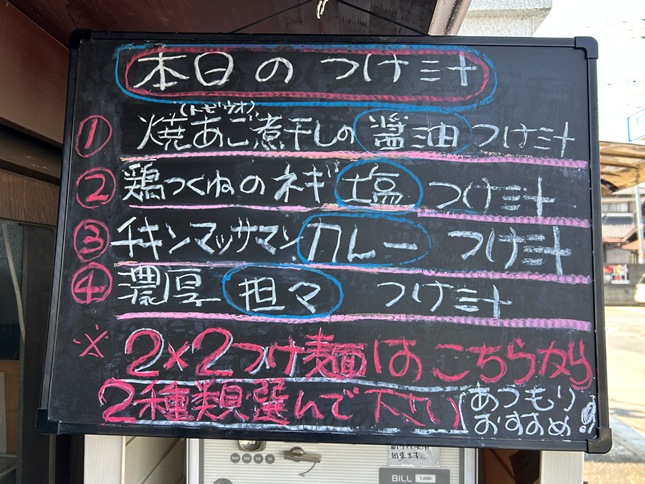 本日のつけ汁
(トビウオ)
① 焼あご煮干しの醤油つけ汁
② 鶏つくねのネギ塩つけ汁
③ チキンマッサマンカレーつけ汁
④ 濃厚担々つけ汁
※ 2×2つけ麺はこちらから
2種類選んで下さい
あつもり
おすすめ!!
出来ます。
BILL 1,000